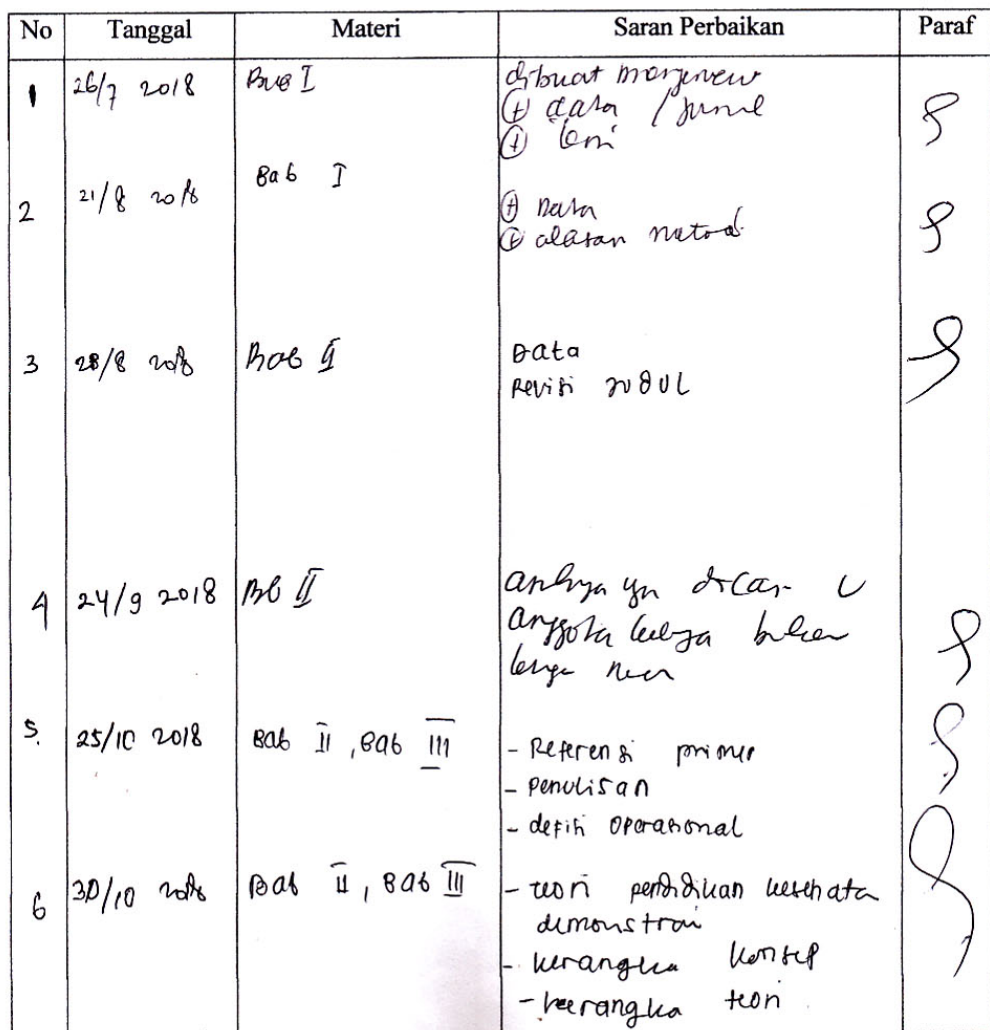 No Tanggal Materi Saran Perbaikan Paraf
1 26/7 2018 Bab I dibuat
(+) data / jurnal
(+)
2 21/8 2018 Bab I
(+) Data
(+) alasan metod
3 28/8 2018 Bab II Data
Revisi JUDUL
4 24/9 2018 Bb II
anggota bukan
5. 25/10 2018 Bab II, Bab III - Referensi primer
- Penulisan
- defisi operasional
6 30/10 2018 Bab II, Bab III - teori pendidikan kesehata
demonstrai
- kerangka konsep
- kerangka teori